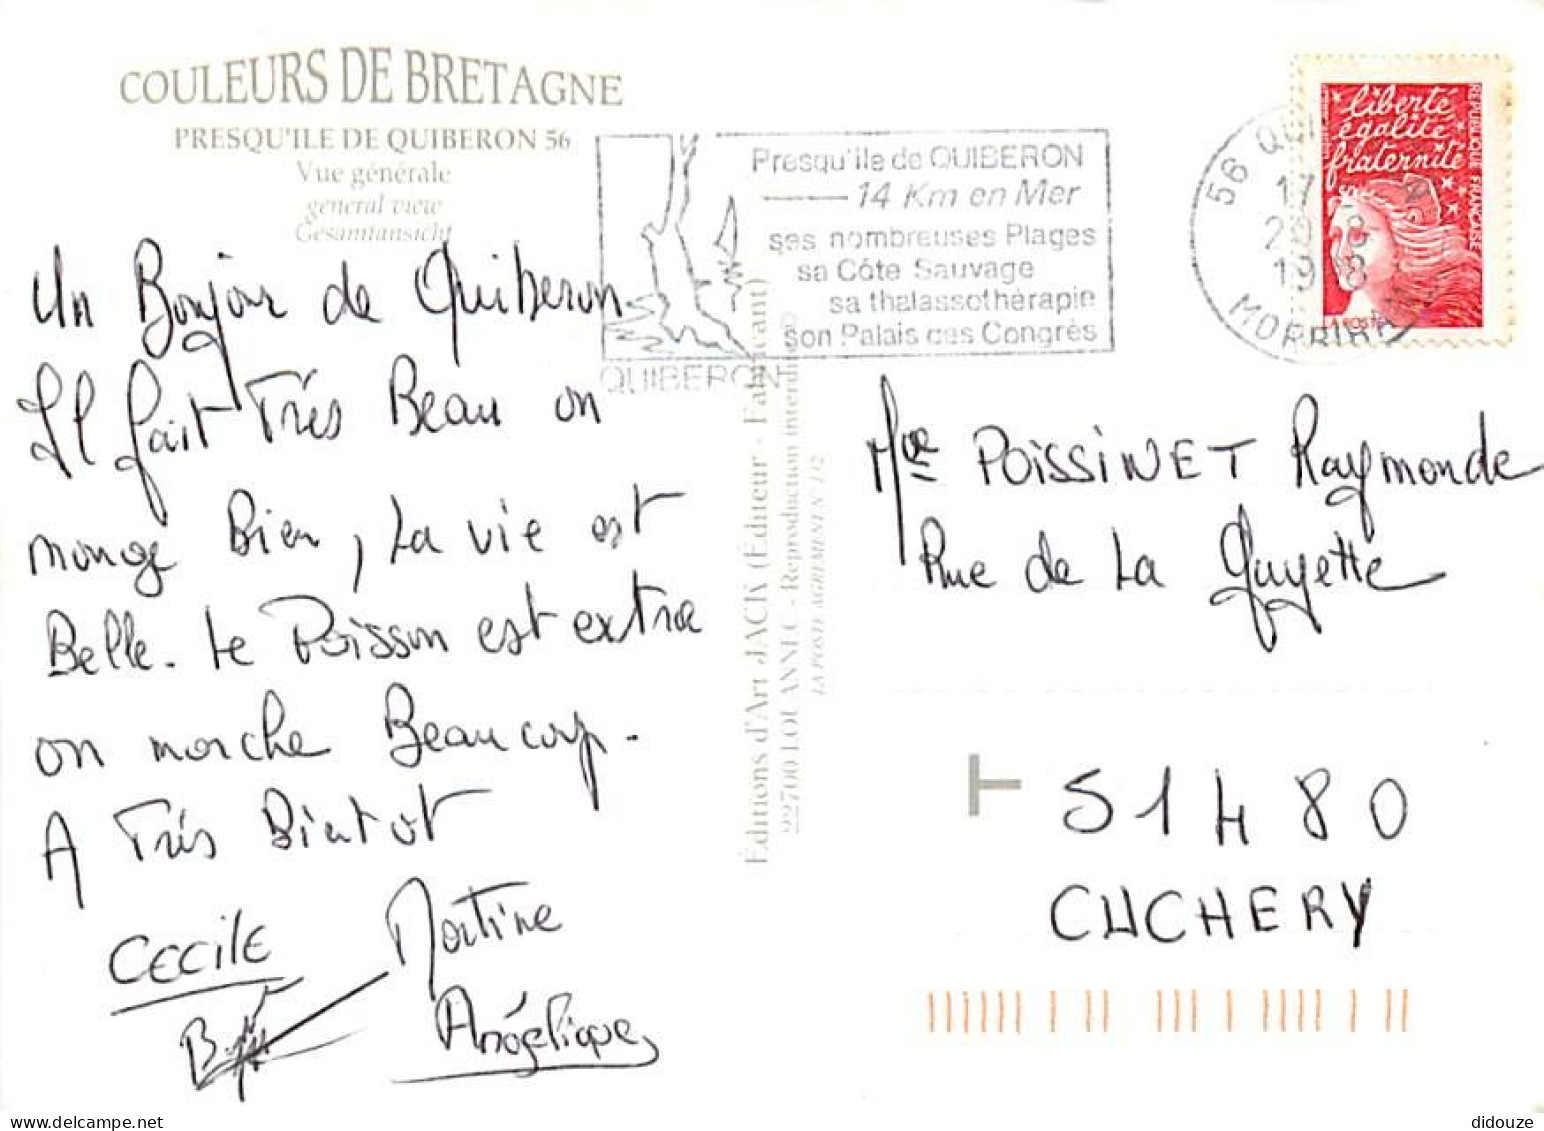 COULEURS DE BRETAGNE
PRESQU'ILE DE QUIBERON 56
Vue générale
general view
Gesamtansicht
Un Bonjour de Quiberon
Il fait Très Beau on
mange Bien, La vie est
Belle. Le Poisson est extra
on marche Beaucoup.
A Très Bientot
CECILE Martine
Angélique
Presqu'ile de QUIBERON
14 Km en Mer
ses nombreuses Plages
sa Côte Sauvage
sa thalassothérapie
son Palais des Congrès
QUIBERON
56 QUI
17
1998
MORBIHAN
liberté
égalité
fraternité
REPUBLIQUE FRANÇAISE
LA POSTE
Éditions d'Art JACK (Éditeur - Fabricant)
22700 LOUANNEC - Reproduction interdite ©
LA POSTE AGREMENT N°
Mme POISSINET Raymonde
Rue de La Guyette
T 51480
CUCHERY
didouze